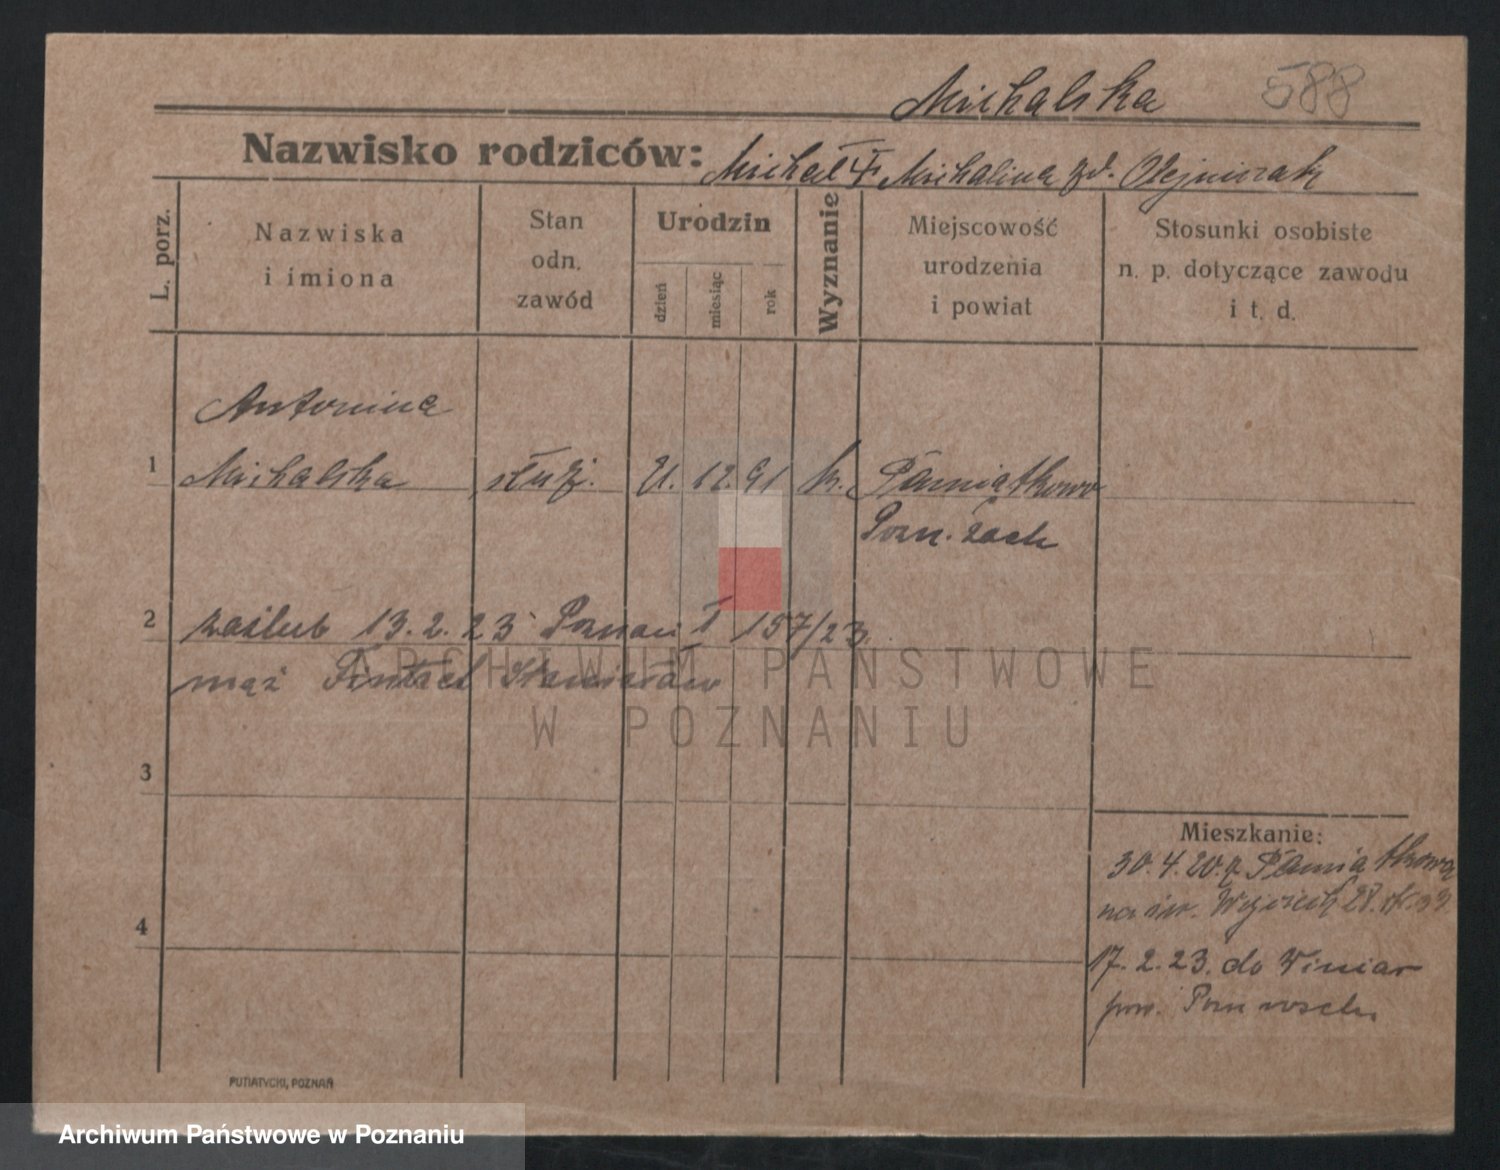 Michalska 588
Nazwisko rodziców: Michał i Michalina zd. Olejniczak
L. porz.
Nazwiska
i imiona
Stan
odn.
zawód
Urodzin
dzień
miesiąc
rok
Wyznanie
Miejscowość
urodzenia
i powiat
Stosunki osobiste
n. p. dotyczące zawodu
i t. d.
Antonina
1 Michalska służ. 21. 12. 91 k. Pamiątkowo
Pozn. zach
2 zaślub 13. 2. 23 Poznań I 157/23.
mąż Stanisław
ARCHIWUM PAŃSTWOWE
W POZNANIU
3
Mieszkanie:
30. 4. 20. z Pamiątkowa
na św. Wojciech
4
17. 2. 23. do Winiar
pow. Pozn wsch.
PUTIATYCKI, POZNAŃ
Archiwum Państwowe w Poznaniu